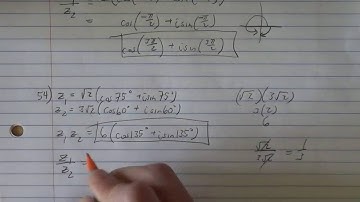 = cos(-π/2) + i sin(-π/2)
= cos(3π/2) + i sin(3π/2)
54) z₁ = √2 (cos 75° + i sin 75°)
z₂ = 3√2 (cos 60° + i sin 60°)
z₁ z₂ = 6 (cos 135° + i sin 135°)
z₁/z₂ =
(√2)(3√2)
3(2)
6
√2/3√2 = 1/3